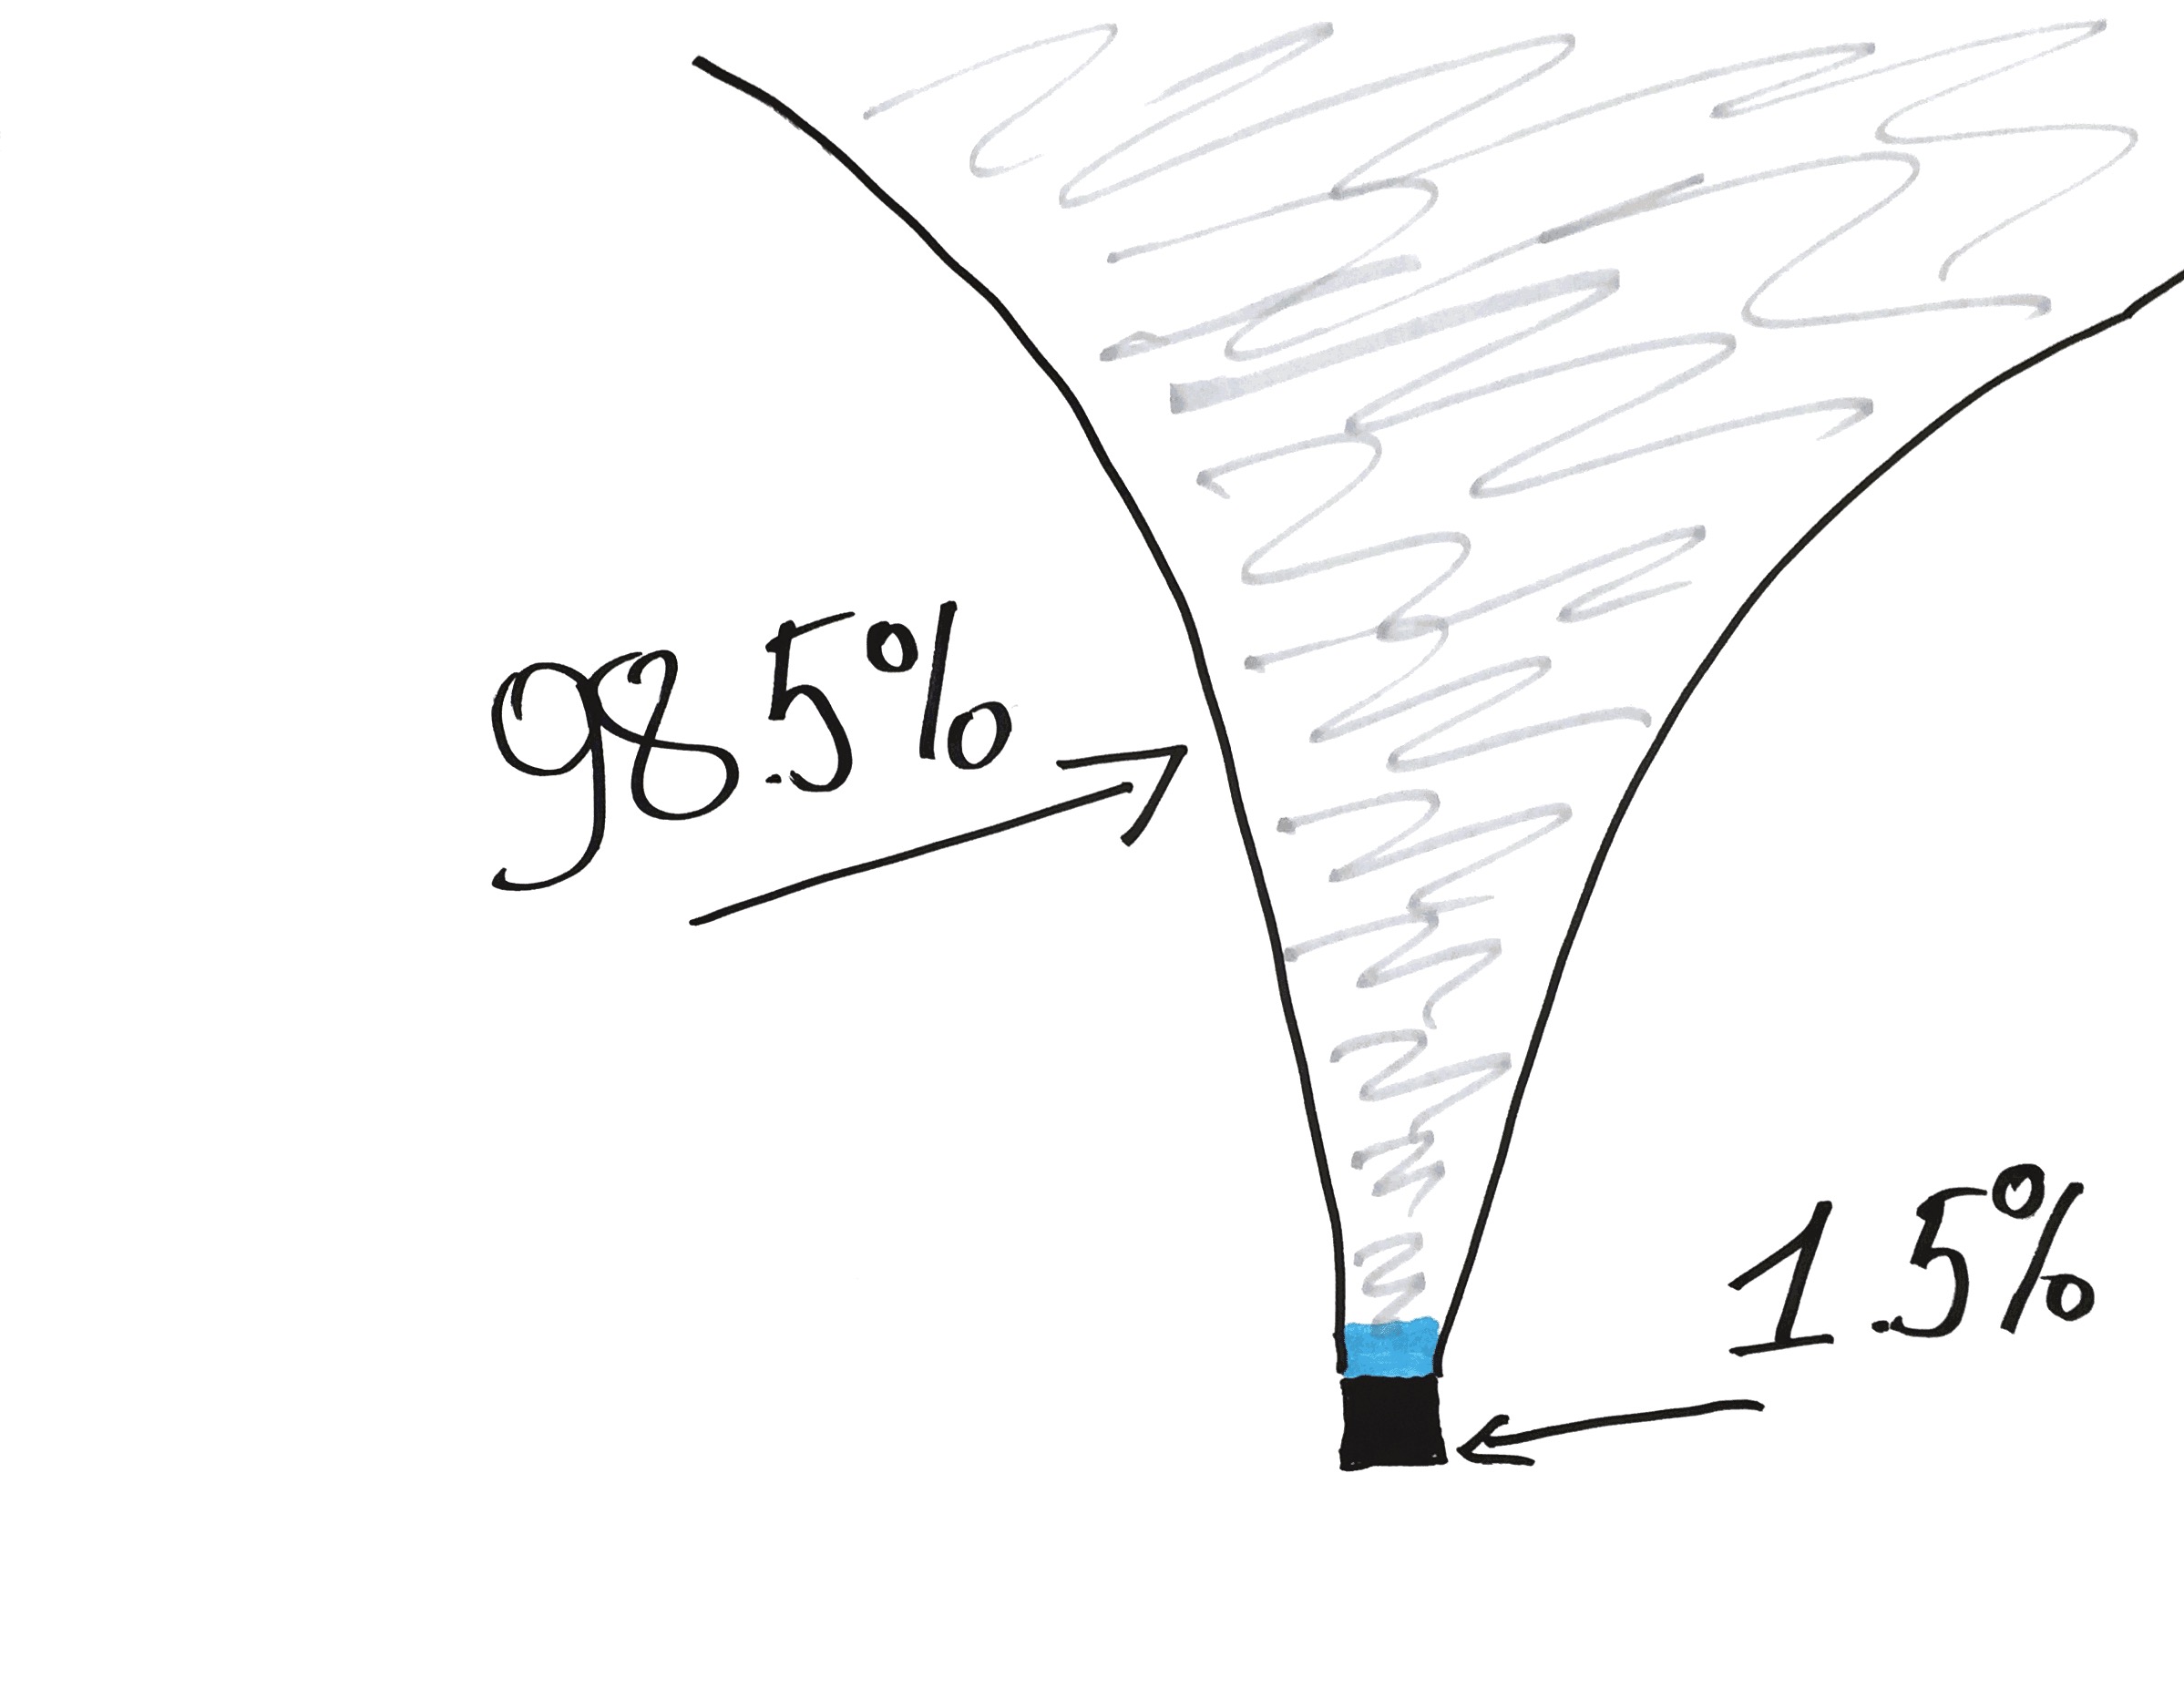 98.5%
1.5%